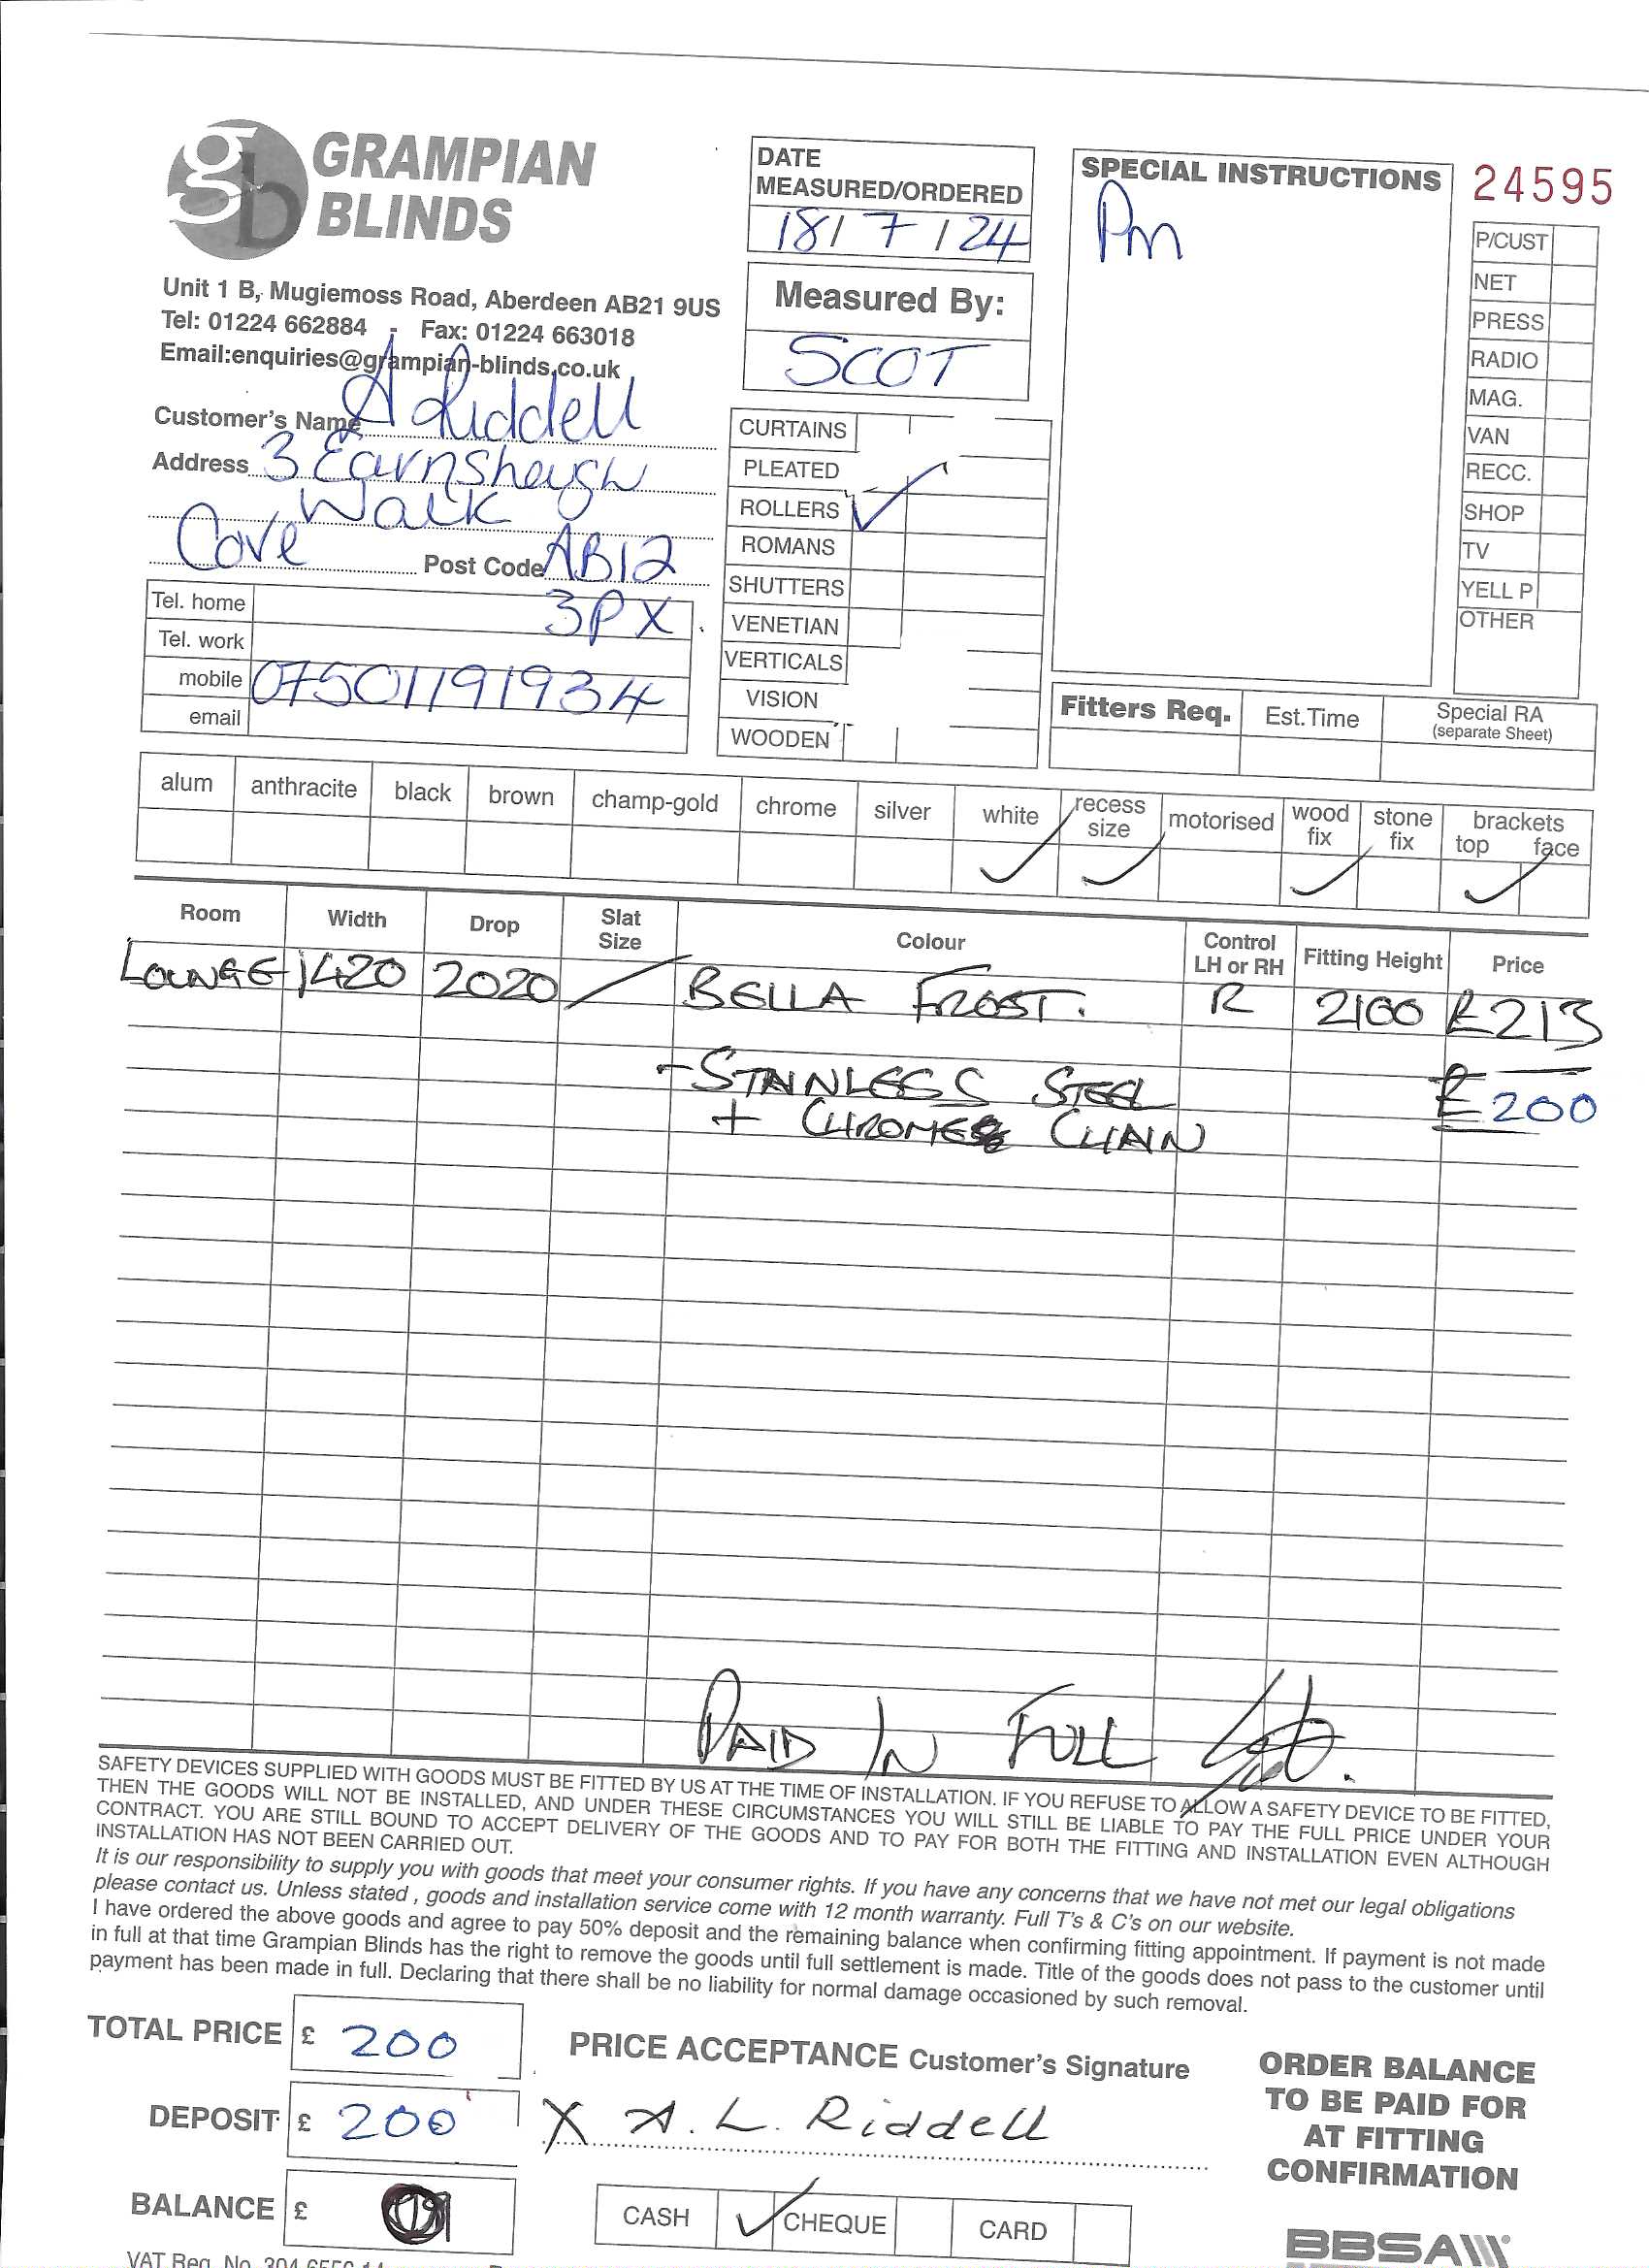 GRAMPIAN
BLINDS
Unit 1 B, Mugiemoss Road, Aberdeen AB21 9US
Tel: 01224 662884 - Fax: 01224 663018
Email:enquiries@grampian-blinds.co.uk
Customer's Name A Riddell
Address 3 Earnsheugh
Walk
Cove Post Code AB12
3PX
Tel. home
Tel. work
mobile 07501191934
email
DATE
MEASURED/ORDERED
18/7/24
Measured By:
SCOT
CURTAINS
PLEATED
ROLLERS ✓
ROMANS
SHUTTERS
VENETIAN
VERTICALS
VISION
WOODEN
SPECIAL INSTRUCTIONS
Pm
24595
P/CUST
NET
PRESS
RADIO
MAG.
VAN
RECC.
SHOP
TV
YELL P
OTHER
Fitters Req. Est.Time Special RA
(separate Sheet)
alum anthracite black brown champ-gold chrome silver white recess size motorised wood fix stone fix brackets top face
✓ ✓ ✓ ✓
Room Width Drop Slat Size Colour Control LH or RH Fitting Height Price
LOUNGE 1420 2020 / BELLA FROST. R 2100 £213
- STAINLESS STEEL £200
+ CHROME CHAIN
PAID IN FULL
SAFETY DEVICES SUPPLIED WITH GOODS MUST BE FITTED BY US AT THE TIME OF INSTALLATION. IF YOU REFUSE TO ALLOW A SAFETY DEVICE TO BE FITTED,
THEN THE GOODS WILL NOT BE INSTALLED, AND UNDER THESE CIRCUMSTANCES YOU WILL STILL BE LIABLE TO PAY THE FULL PRICE UNDER YOUR
CONTRACT. YOU ARE STILL BOUND TO ACCEPT DELIVERY OF THE GOODS AND TO PAY FOR BOTH THE FITTING AND INSTALLATION EVEN ALTHOUGH
INSTALLATION HAS NOT BEEN CARRIED OUT.
It is our responsibility to supply you with goods that meet your consumer rights. If you have any concerns that we have not met our legal obligations
please contact us. Unless stated , goods and installation service come with 12 month warranty. Full T's & C's on our website.
I have ordered the above goods and agree to pay 50% deposit and the remaining balance when confirming fitting appointment. If payment is not made
in full at that time Grampian Blinds has the right to remove the goods until full settlement is made. Title of the goods does not pass to the customer until
payment has been made in full. Declaring that there shall be no liability for normal damage occasioned by such removal.
TOTAL PRICE £ 200
DEPOSIT £ 200
BALANCE £
PRICE ACCEPTANCE Customer's Signature
X A. L. Riddell
CASH ✓ CHEQUE CARD
ORDER BALANCE
TO BE PAID FOR
AT FITTING
CONFIRMATION
BBSA
VAT Reg. No.